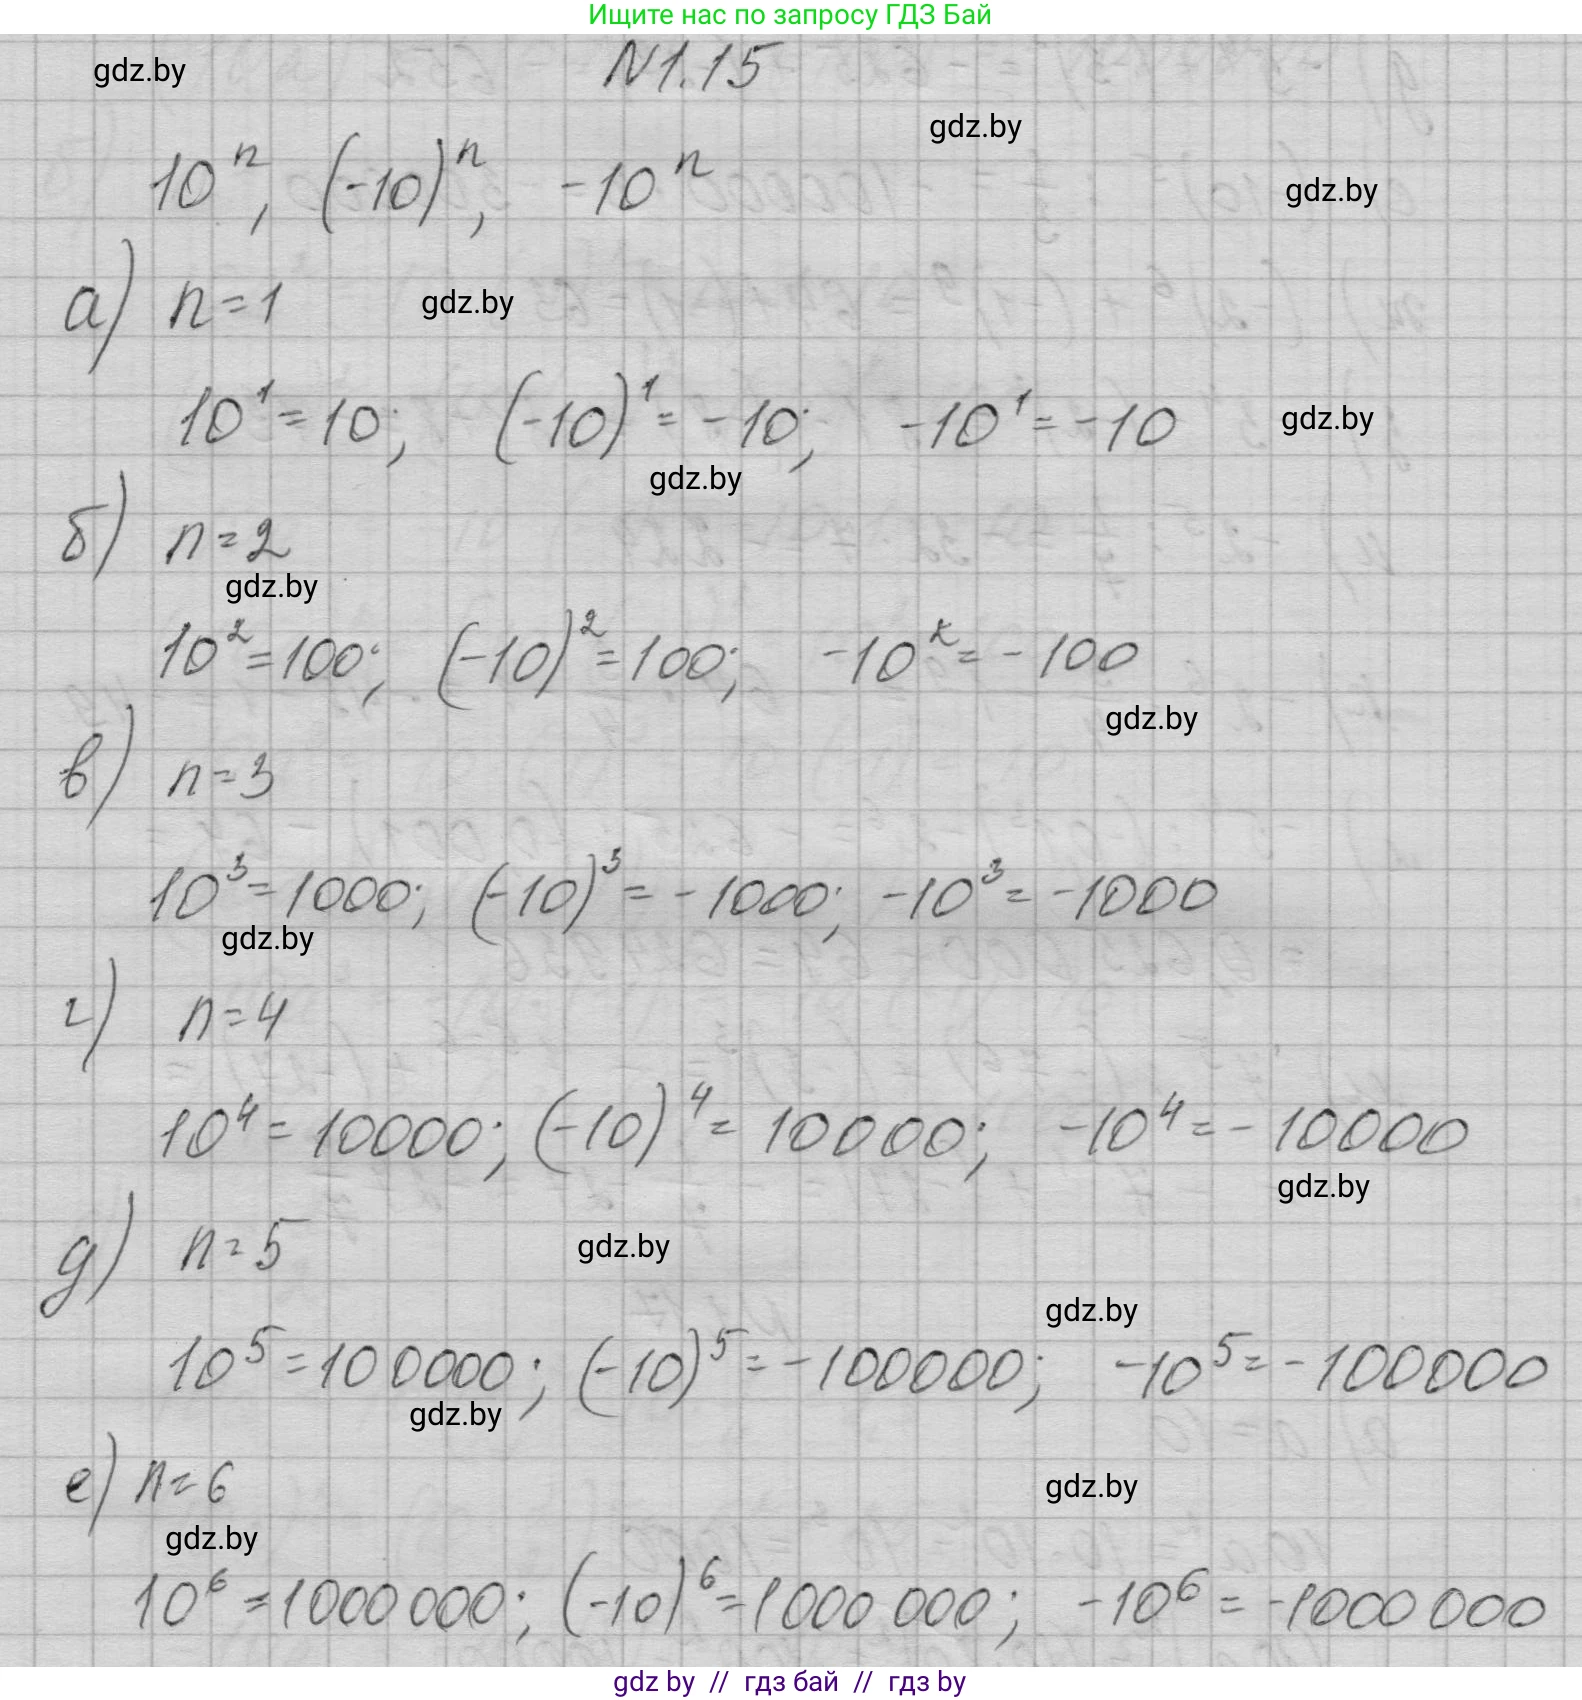 Ищите нас по запросу ГДЗ Бай
N1.15
gdz.by
gdz.by
10ⁿ, (-10)ⁿ, -10ⁿ
gdz.by
а) n=1
gdz.by
10¹=10; (-10)¹= -10; -10¹= -10
gdz.by
gdz.by
б) n=2
gdz.by
10²=100; (-10)²=100; -10²= -100
gdz.by
в) n=3
10³=1000; (-10)³= -1000; -10³= -1000
gdz.by
г) n=4
10⁴= 10000; (-10)⁴= 10000; -10⁴= - 10000
gdz.by
д) n=5
gdz.by
gdz.by
10⁵=100000; (-10)⁵= -100000; -10⁵= -100000
gdz.by
е) n=6
gdz.by
gdz.by
10⁶=1000 000; (-10)⁶=1000 000; -10⁶= -1000 000
gdz by // гдз бай // гдз by